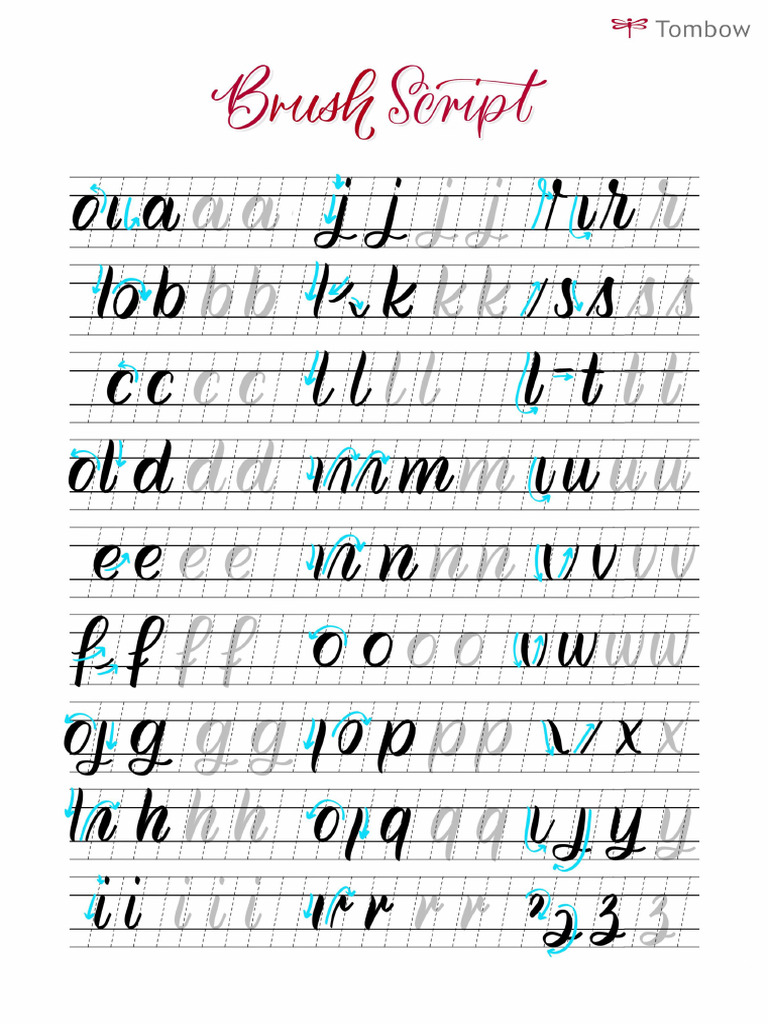 Tombow
Brush Script
o ı a a a j j j j r ı r r
l o b b b l k k k / s s s s
c c c c l l l l l - t l l
o l d d d ı n n m m ı u u u
e e e e ı n n n n ı v v v
f f f f o o o o ı v w w w
o j g g g ı o p p p \ / x x
l n h h h o ı q q q ı j y y
i i i i i ı r r r r ʒ z z